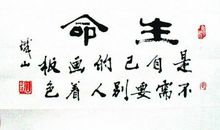 生命
是自己的画板
不需要别人着色
山